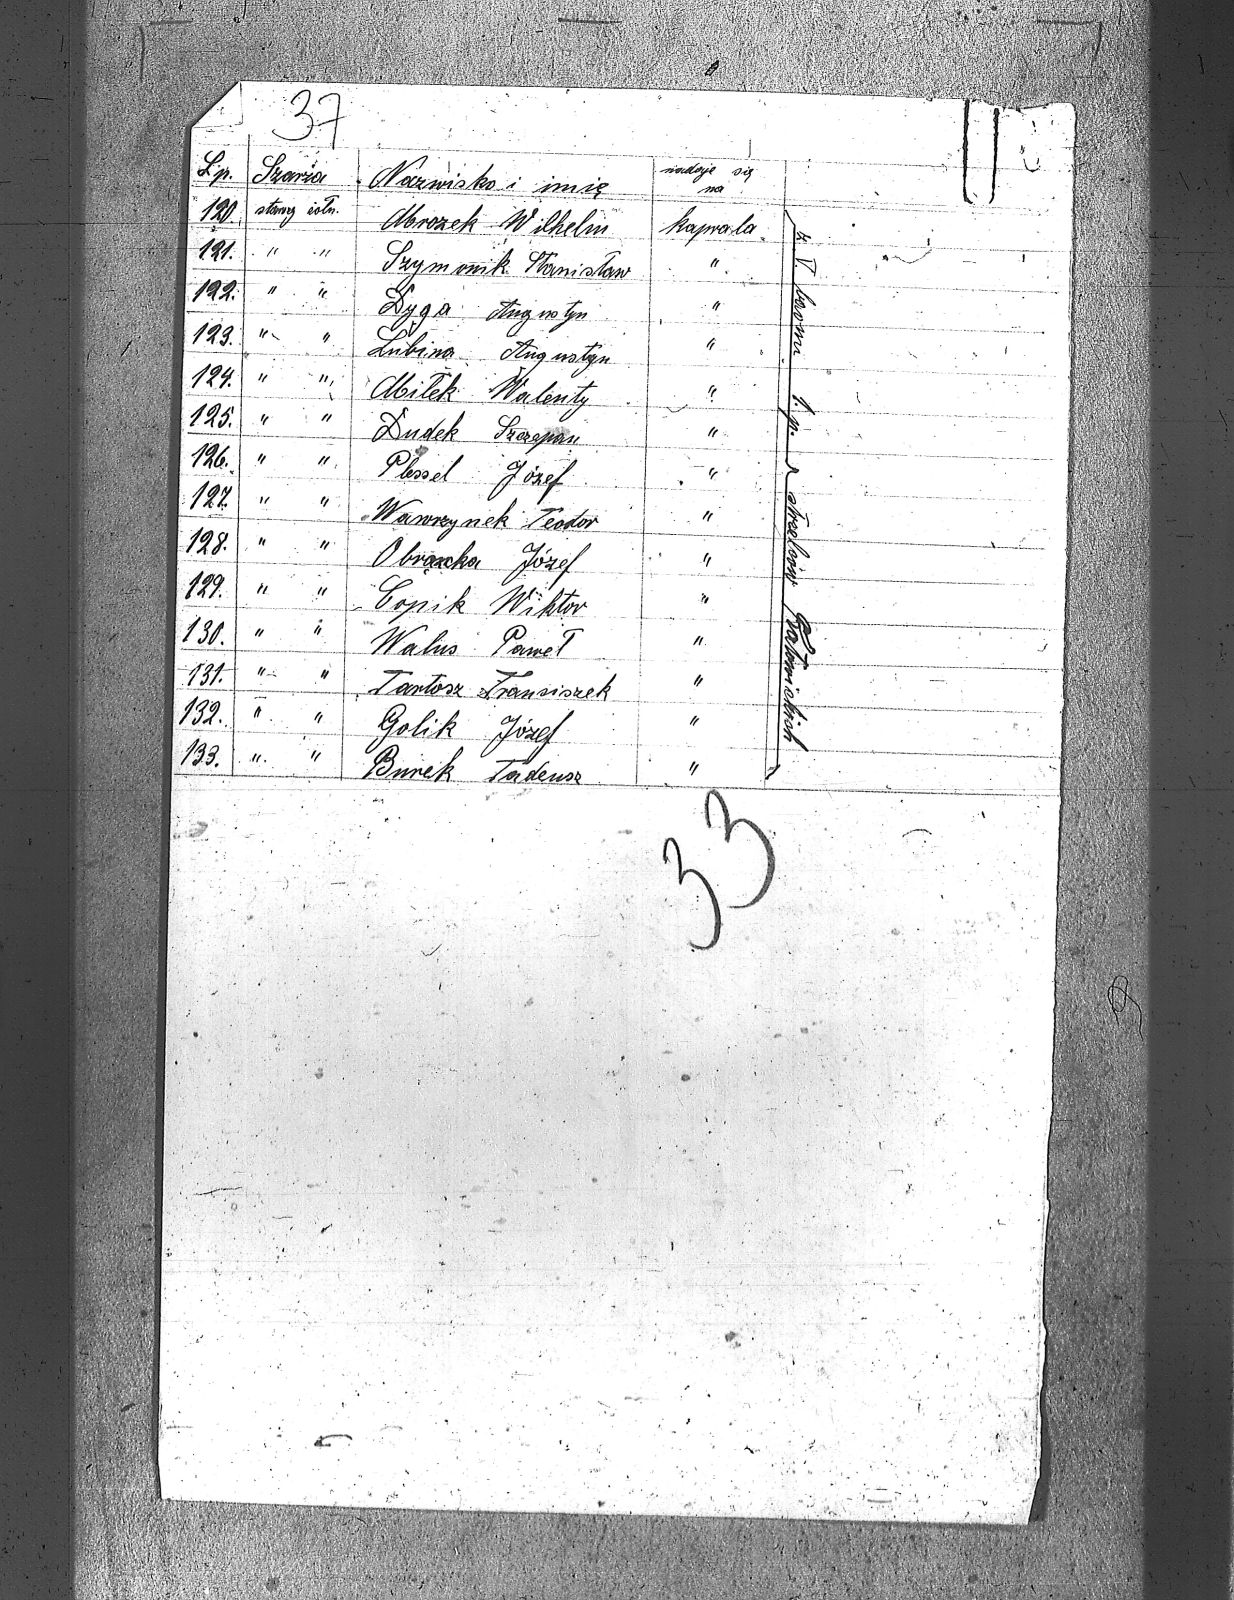 37
Lp. Szarża Nazwisko i imię nadaje się na
120. starszy żołn. Mrozek Wilhelm kaprala
121. " " Szymonik Stanisław "
122. " " Dyga Augustyn "
123. " " Lubina Augustyn "
124. " " Miłek Walenty "
125. " " Dudek Szczepan "
126. " " Plessel Józef "
127. " " Wawrzynek Teodor "
128. " " Obrączka Józef "
129. " " Copik Wiktor "
130. " " Walus Paweł "
131. " " Tartosz Fransiszek "
132. " " Golik Józef "
133. " " Burek Tadeusz "
z V. baonu 1. p. strzelców Katowickich
33